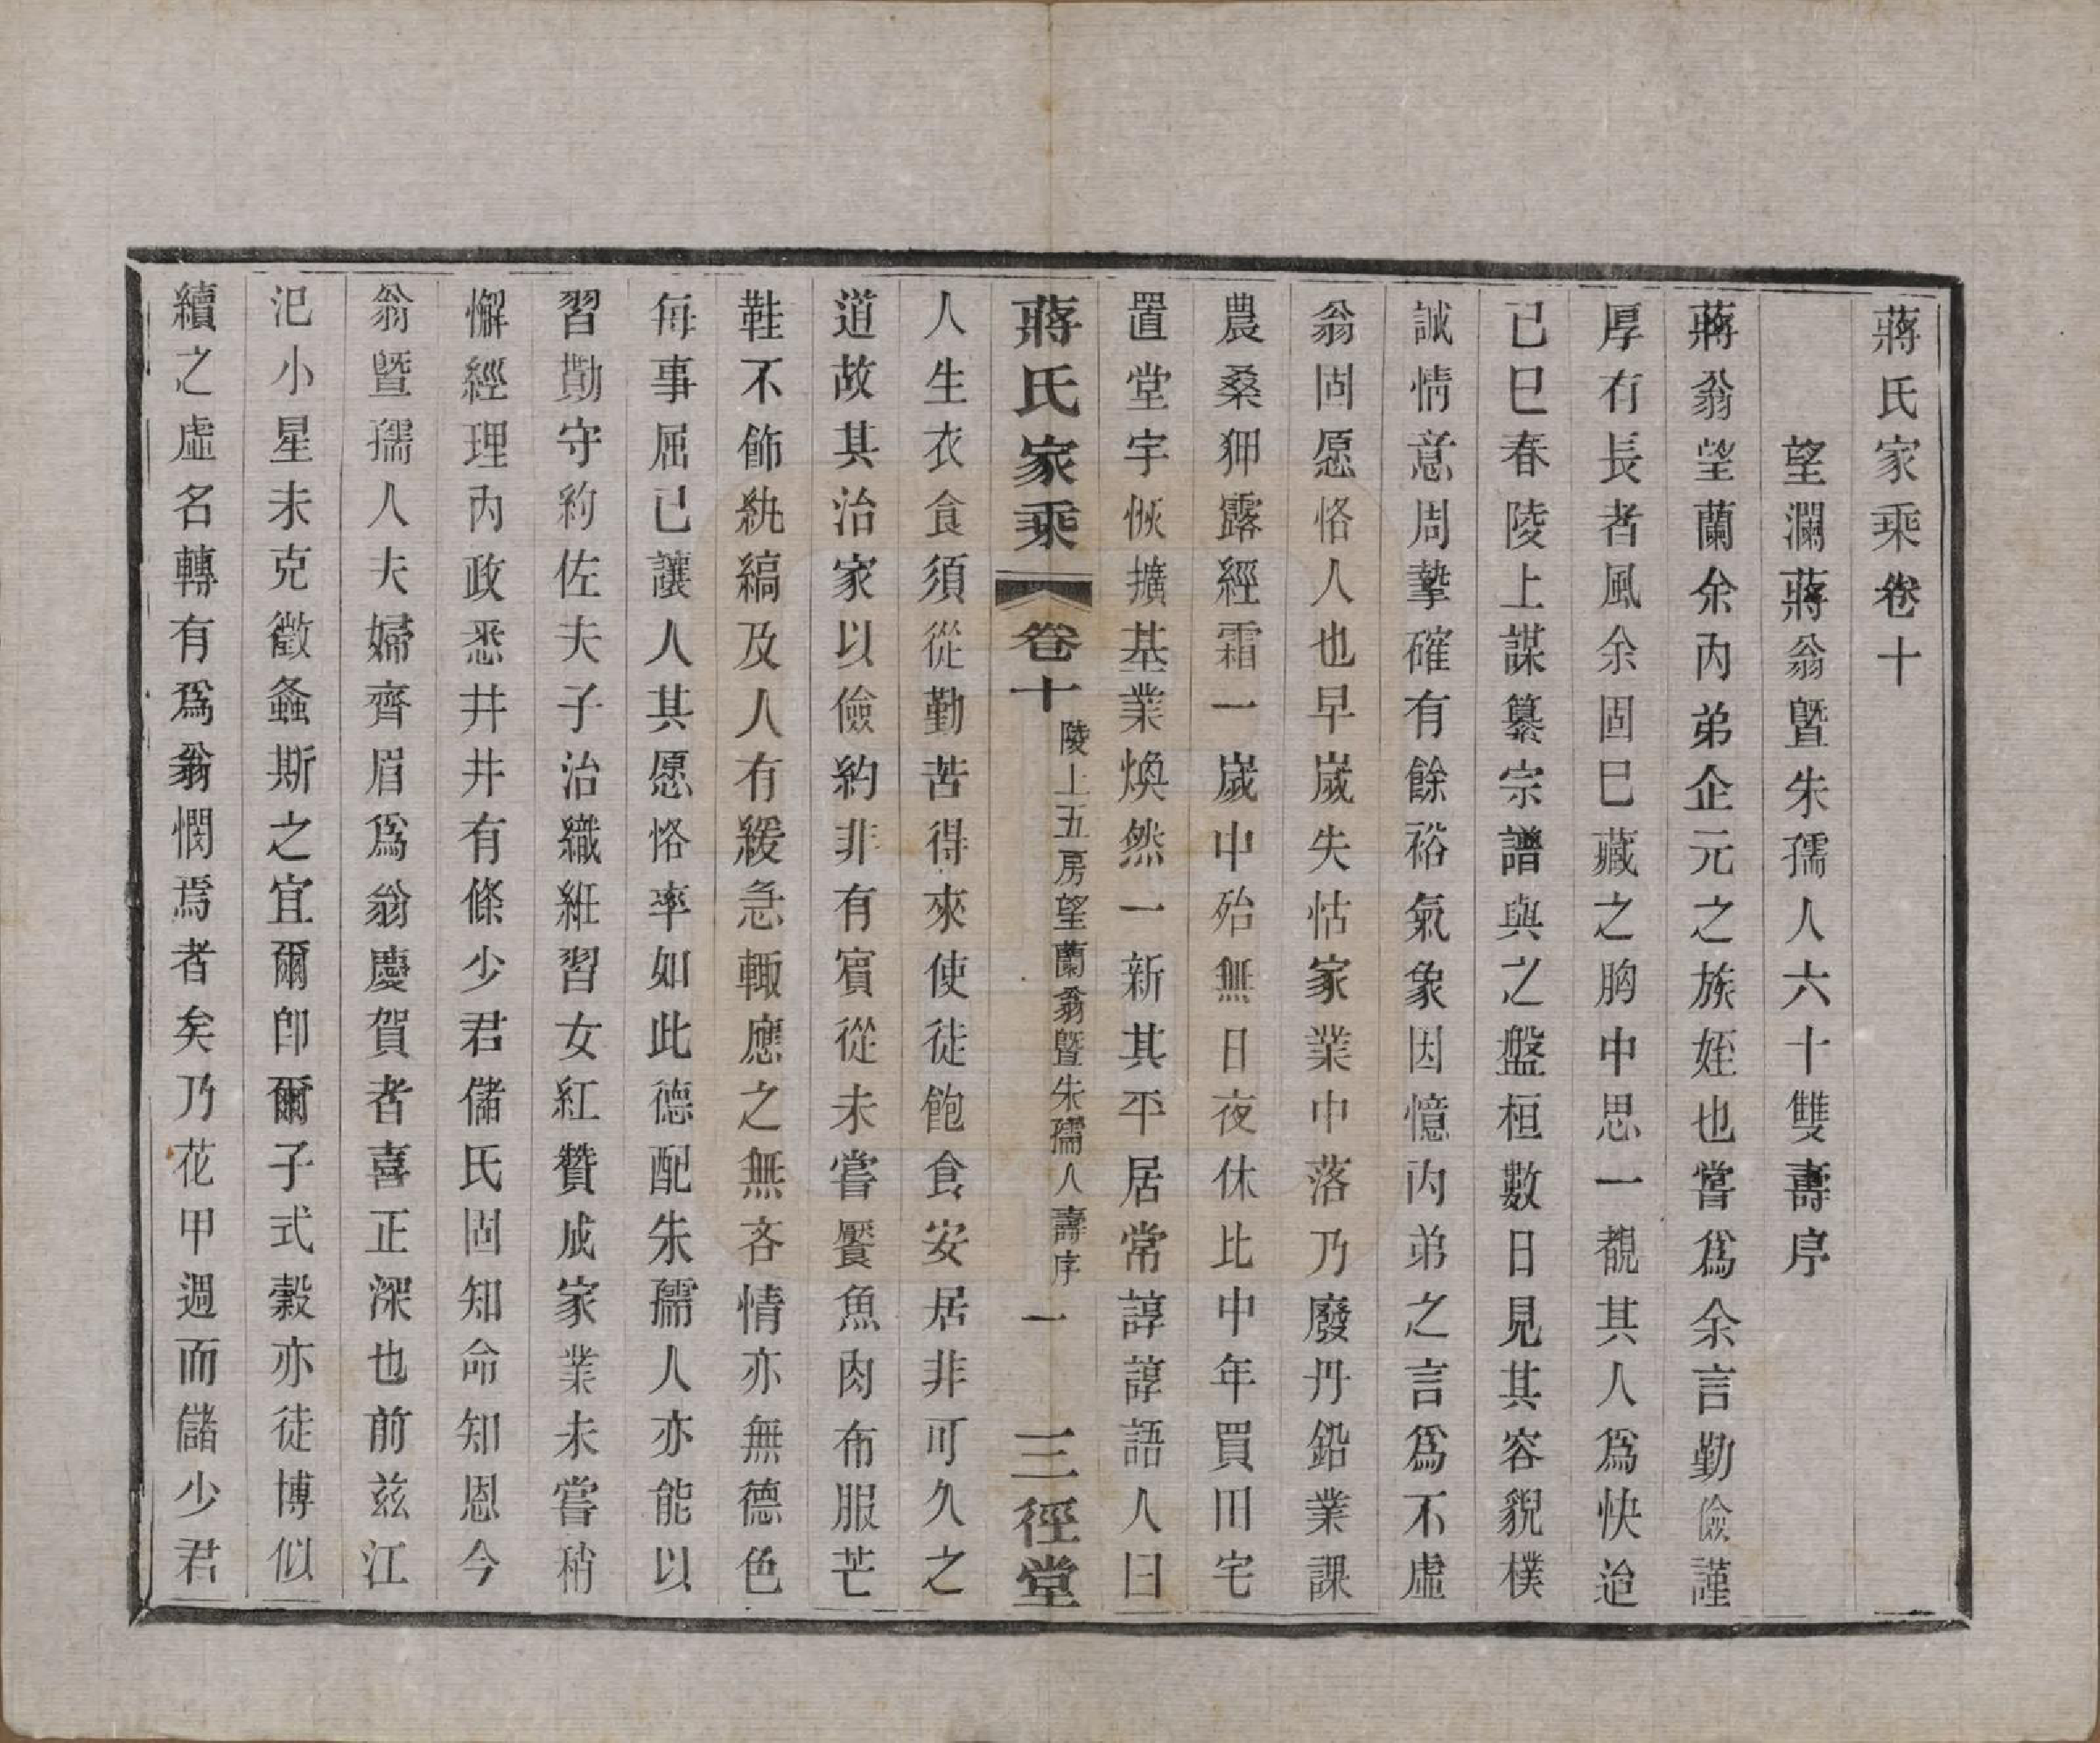 蔣氏家乘卷十
望瀾蔣翁暨朱孺人六十雙壽序
蔣翁望蘭余內弟企元之族姪也嘗爲余言勤儉謹
厚有長者風余固已藏之胸中思一覩其人爲快迨
己巳春陵上謀纂宗譜與之盤桓數日見其容貌樸
誠情意周摯確有餘裕氣象因憶內弟之言爲不虛
翁固愿恪人也早歲失怙家業中落乃廢丹鉛業課
農桑狎露經霜一歲中殆無日夜休比中年買田宅
置堂宇恢擴基業煥然一新其平居常諄諄語人曰
蔣氏家乘 卷十 陵上五房望蘭翁暨朱孺人壽序 一 三徑堂
人生衣食須從勤苦得來使徒飽食安居非可久之
道故其治家以儉約非有賓從未嘗饜魚肉布服芒
鞋不飾紈縞及人有緩急輒應之無吝情亦無德色
每事屈已讓人其愿恪率如此德配朱孺人亦能以
習勤守約佐夫子治織絍習女紅贊成家業未嘗稍
懈經理內政悉井井有條少君儲氏固知命知恩今
翁暨孺人夫婦齊眉爲翁慶賀者喜正深也前兹江
汜小星未克徵螽斯之宜爾卽爾子式穀亦徒博似
續之虛名轉有爲翁憫焉者矣乃花甲週而儲少君